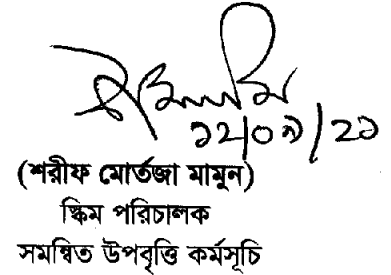 ১২/০৯/২১
(শরীফ মোর্তজা মামুন)
স্কিম পরিচালক
সমন্বিত উপবৃত্তি কর্মসূচি